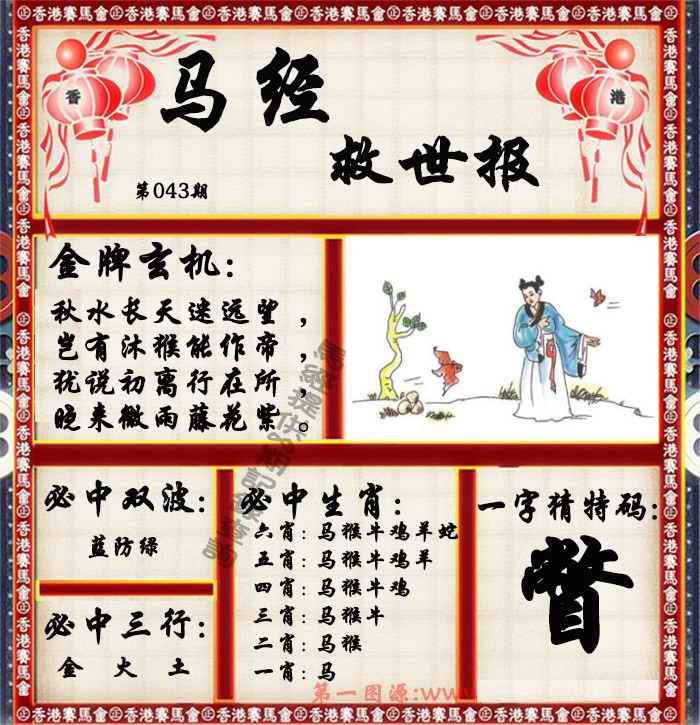 香港賽馬會
香
港
马经
救世报
第043期
金牌玄机：
秋水长天迷远望，
岂有沐猴能作帝，
犹说初离行在所，
晚来微雨藤花紫。
必中双波：
蓝防绿
必中三行：
金 火 土
必中生肖：
六肖：马猴牛鸡羊蛇
五肖：马猴牛鸡羊
四肖：马猴牛鸡
三肖：马猴牛
二肖：马猴
一肖：马
一字猜特码：
瞥
第一图源:www